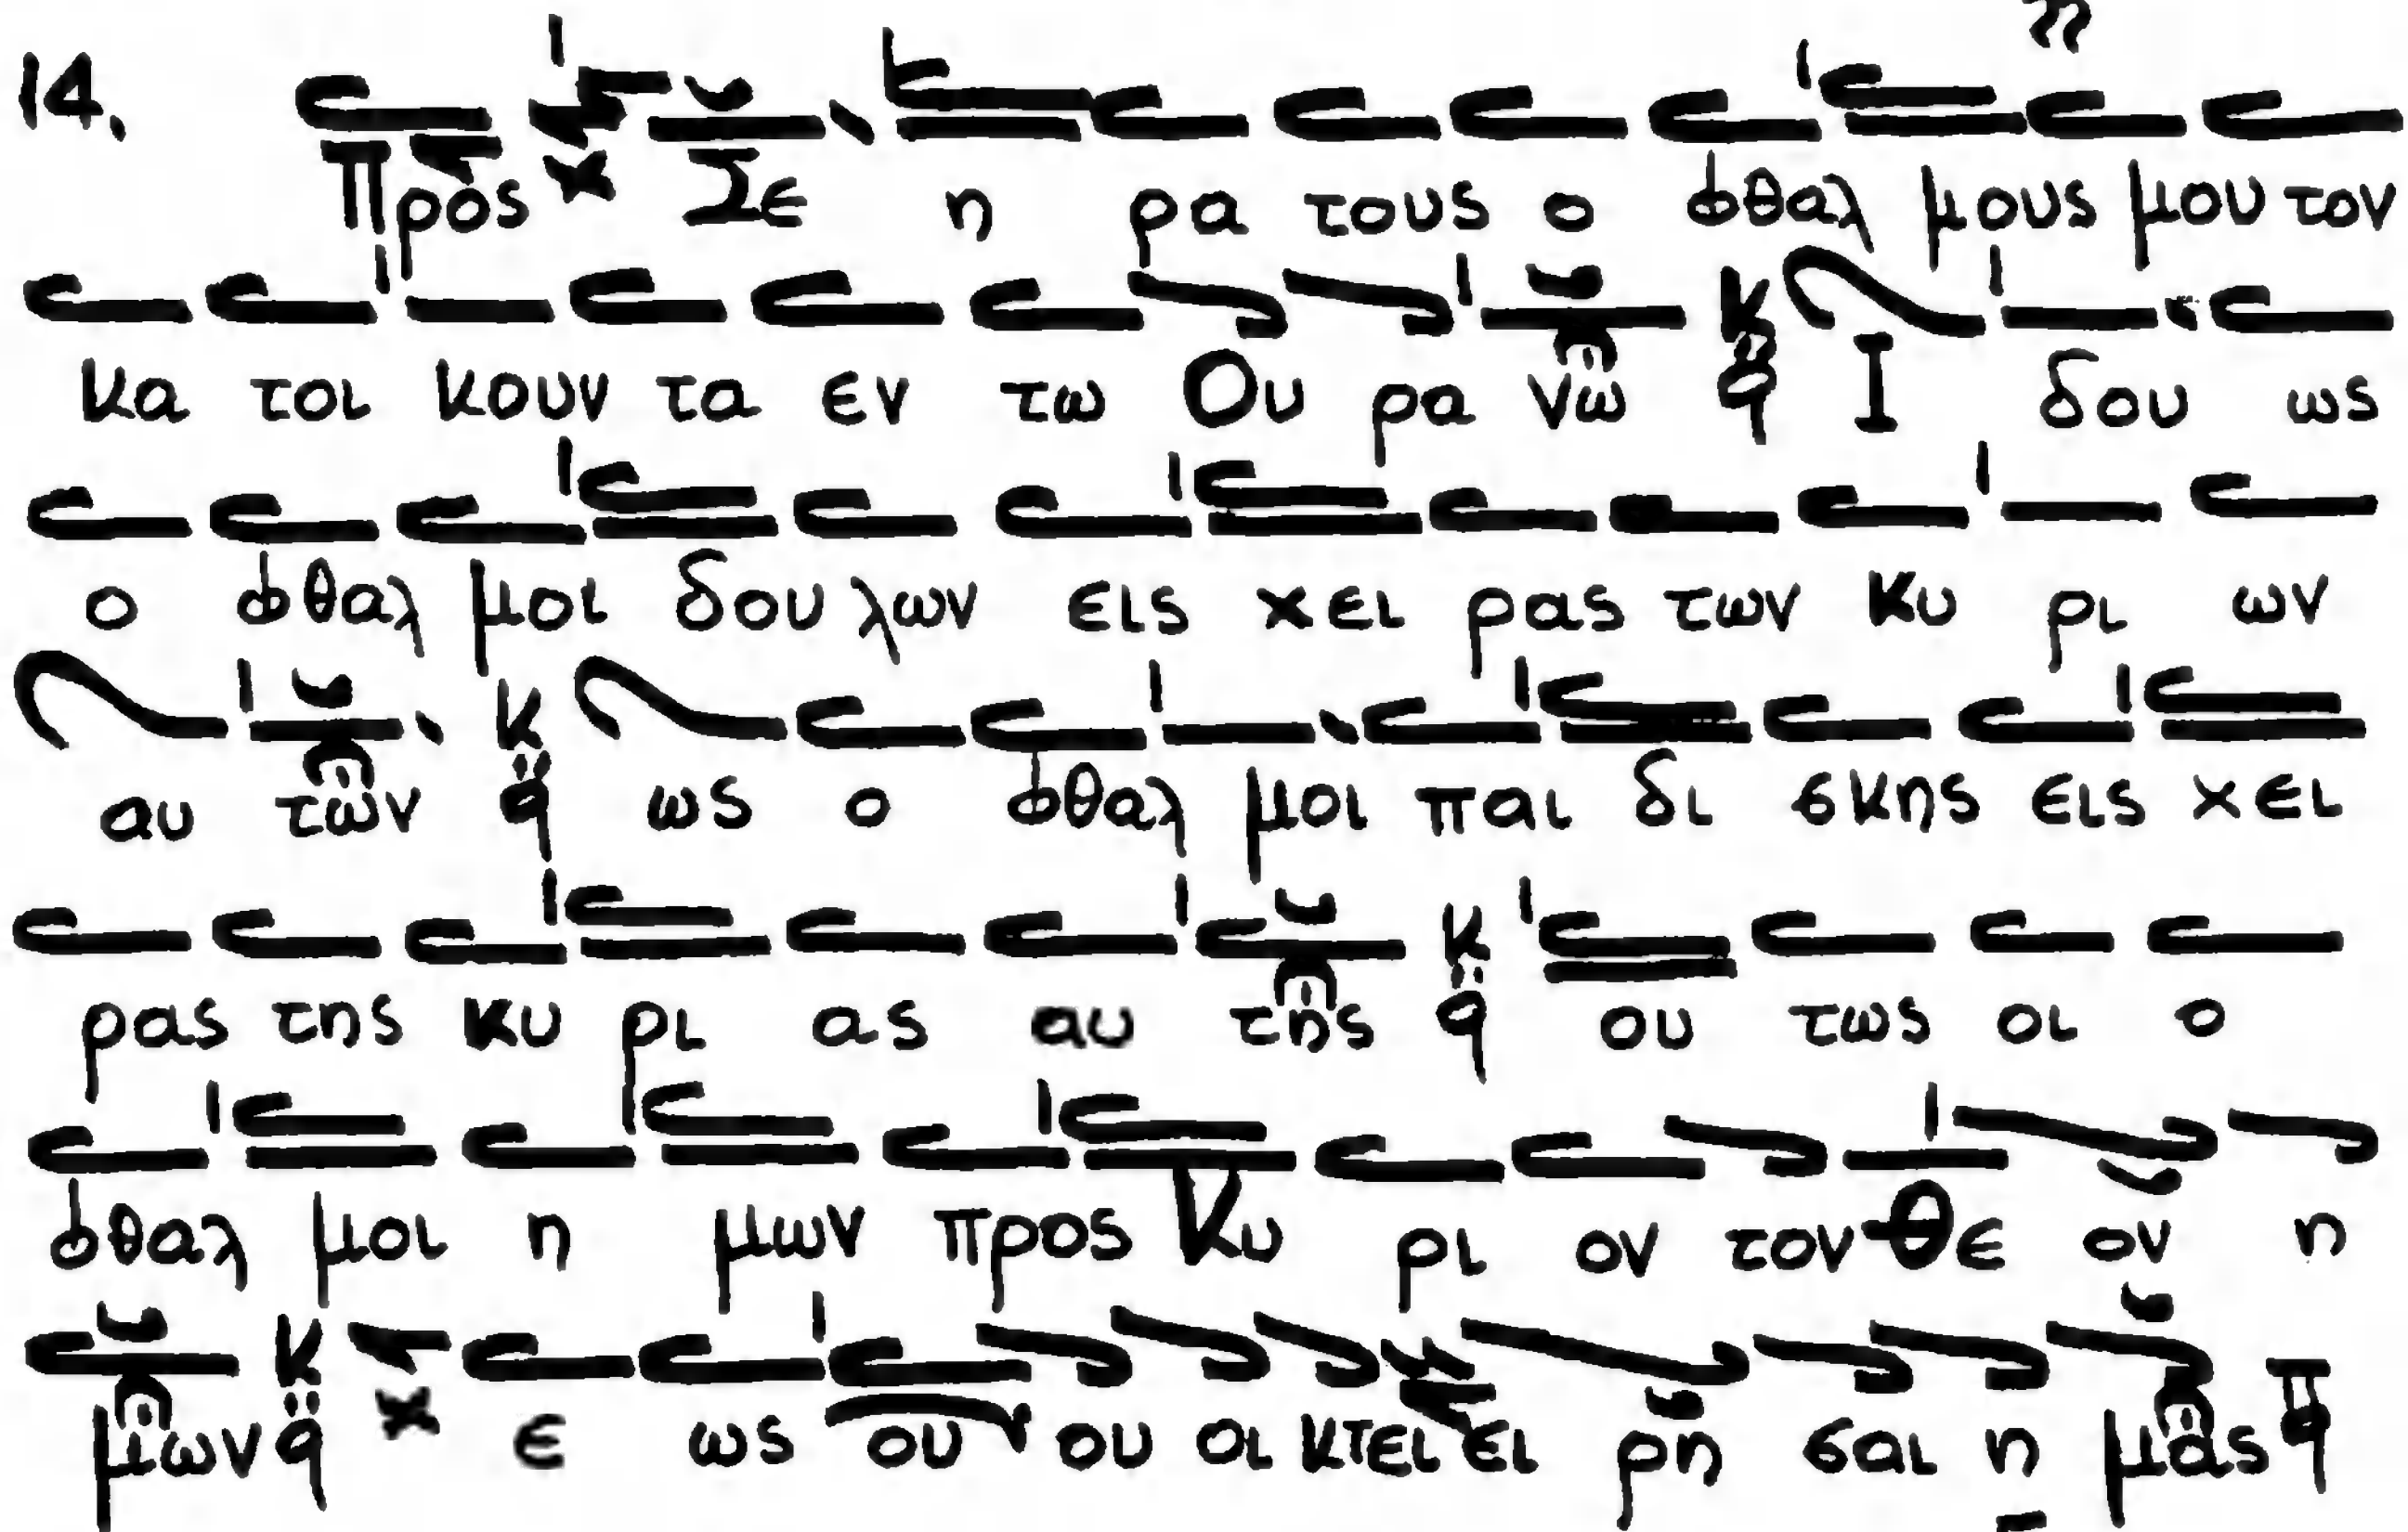 14.
Προς Σε η ρα τους ο φθαλ μους μου τον
κα τοι κουν τα εν τω Ου ρα νω κ q Ι δου ως
ο φθαλ μοι δου λων εις χει ρας των κυ ρι ων
αυ των κ q ως ο φθαλ μοι παι δι σκης εις χει
ρας της κυ ρι ας αυ της κ q ου τως οι ο
φθαλ μοι η μων προς Κυ ρι ον τον Θε ον η
μων κ q ε ως ου ου οι κτει ει ρη σαι η μας π q